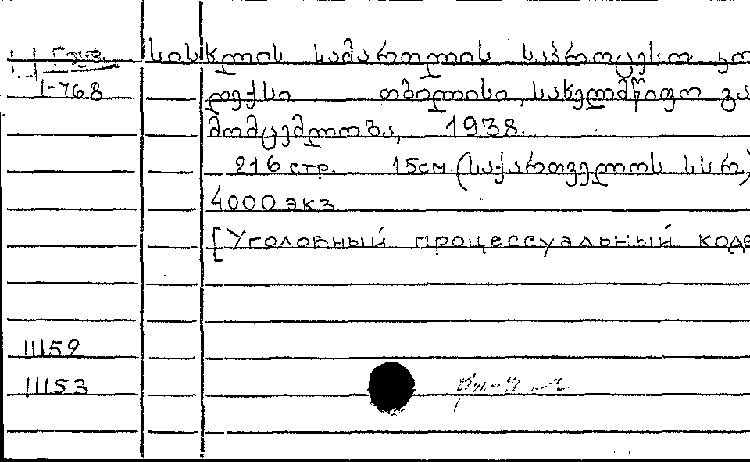 სისხლის სამართლის საპროცესო კო
1-768
დექსი თბილისი, სახელმწიფო გა
მომცემლობა, 1938
216 стр. 15см (საქართველოს სსრ)
4000 экз
[Уголовный процессуальный коде
11152
11153